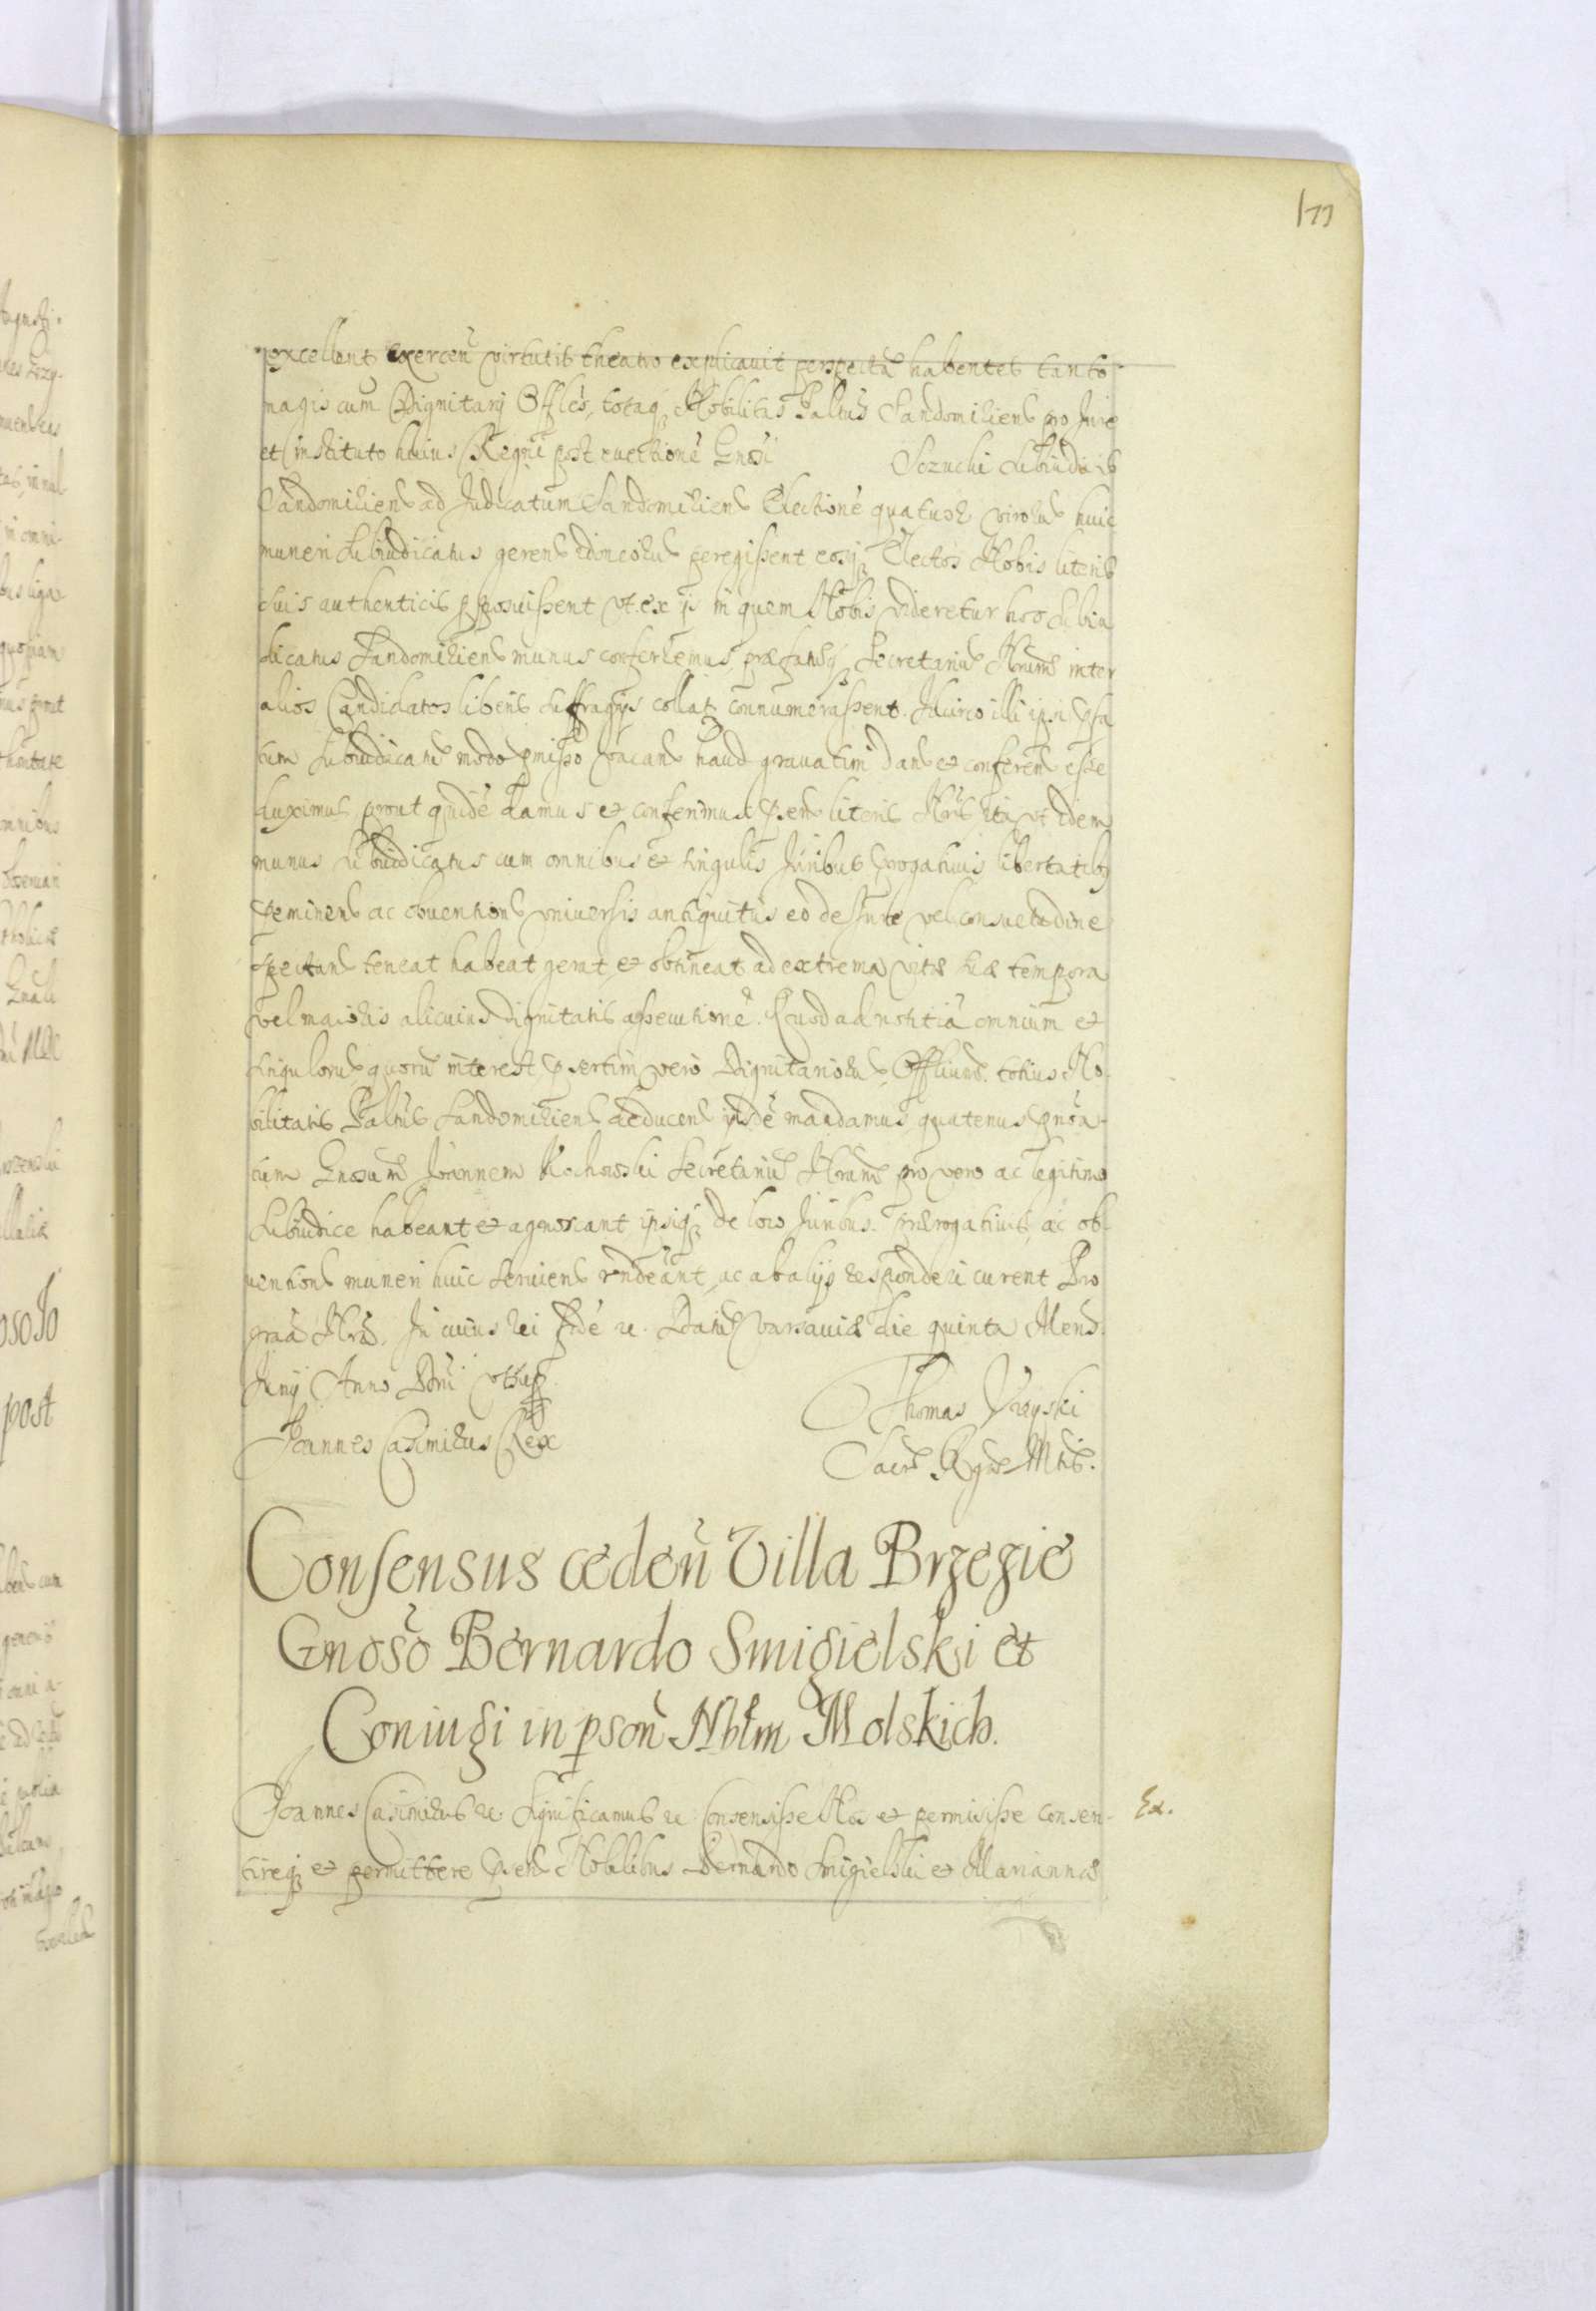 177
excellent exercen virtutis theatro explicauit perspectã habentes tanto
magis cum Dignitarij Offles, totaq Nobilitas Paltus Sandomiriens pro Jure
et instituto huius Regni post euectionẽ Gnosi Subiudicis
Sandomiriens ad Judicatum Sandomiriens Electionẽ quatuor virorum huic
muneri Subiudicatus gerend idoneorum peregissent eosq Electos Nobis literis
suis authenticis pposuissent vt ex ijs in quem Nobis videretur hoc Subiu
dicatus Sandomiriens munus conferremus, præfatumq Secretarium Nrum inter
alios Candidatos liberis suffragijs collatis connumerassent. Idcirco illi ipsi pfa
tum Subiudicatum modo pmisso vacan haud grauatim dand et conferend esse
duximus prout quidẽ damus et conferimus pntibus literis Nris, ita vt idem
munus Subiudicatus cum omnibus et singulis Juribus progatiuis libertatibq
peminens ac obuention vniuersis antiquitus eo de Jure vel consuetudine
spectan teneat habeat gerat et obtineat ad extrema vitæ suæ tempora
vel maioris alicuius dignitatis assecutionẽ. Quod ad notitiã omnium et
singulorum quorũ interest psertim vero Dignitariorum, Offlium totius No-
bilitatis Paltus Sandomiriens deducend ijsdẽ mandamus quatenus pnoa-
tum Gnosum Joannem Kochowski Secretarium Nrum pro vero ac legitimo
Subiudice habeant et agnoscant ipsiq de loco Juribus, prærogatiuis, ac ob-
uention muneri huic seruien rndeant, ac ab alijs responderi curent Pro
graã Nra. In cuius rei fidẽ &c. Datum Varsauiæ die quinta Mens.
Junij Anno Dni vtsup
Thomas Vieyski
Joannes Casimirus Rex
Sacræ Rgiæ Mtis.
Consensus ceden Villa Brzezie
Gnoso Bernardo Smigielski et
Coniugi in pson Nblm Molskich.
Joannes Casimirus &c. Significamus &c. Consensisse Nos et permisisse consen-
Ex.
tireq et permittere pntibus Nobilibus Bernardo Smigielski et Mariannæ